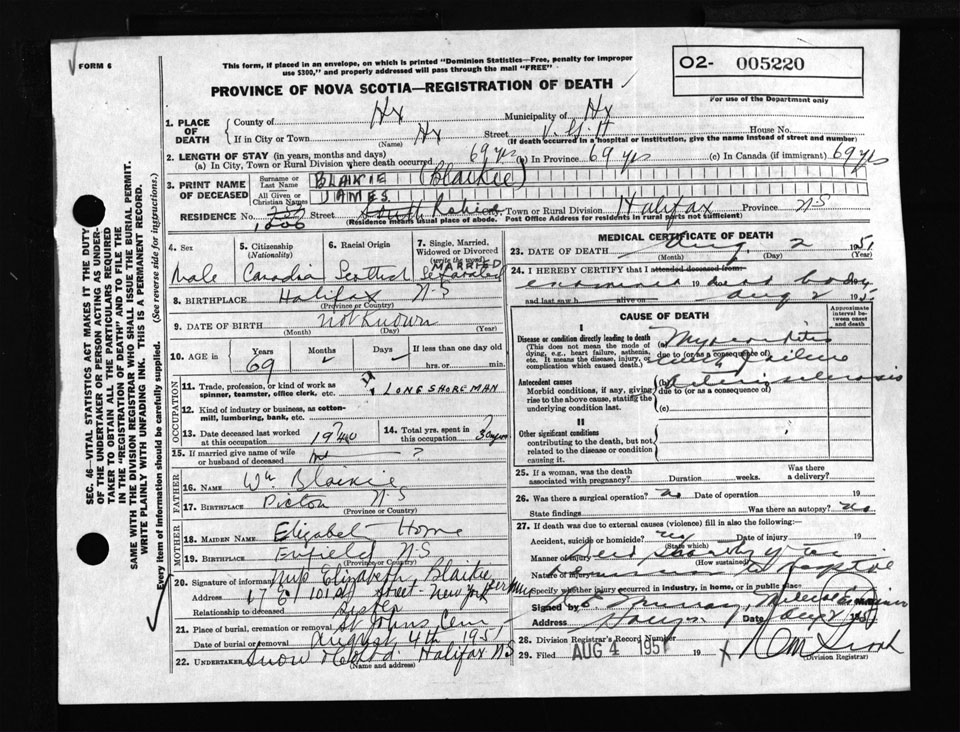 FORM 6
This form, if placed in an envelope, on which is printed "Dominion Statistics—Free, penalty for improper
use $300," and properly addressed will pass through the mail "FREE"
O2- 005220
For use of the Department only
PROVINCE OF NOVA SCOTIA—REGISTRATION OF DEATH
1. PLACE OF DEATH
County of Hx Municipality of Hx
If in City or Town Hx Street V.G.H House No.
(Name) (If death occurred in a hospital or institution, give the name instead of street and number)
2. LENGTH OF STAY (in years, months and days)
(a) In City, Town or Rural Division where death occurred 69 yrs (b) In Province 69 yrs (c) In Canada (if immigrant) 69 yrs
3. PRINT NAME OF DECEASED
Surname or Last Name BLAIKIE (Blaikie)
All Given or Christian Names JAMES
RESIDENCE No. Street South City, Town or Rural Division Halifax Province N-S
(Residence means usual place of abode. Post Office Address for residents in rural parts not sufficient)
4. Sex Male
5. Citizenship (Nationality) Canadian
6. Racial Origin Scottish
7. Single, Married, Widowed or Divorced (write the word) MARRIED Separated
8. BIRTHPLACE Halifax N-S
(Province or Country)
9. DATE OF BIRTH not Known
(Month) (Day) (Year)
10. AGE in Years 69 Months Days If less than one day old hrs. or min.
OCCUPATION
11. Trade, profession, or kind of work as spinner, teamster, office clerk, etc. LONGSHOREMAN
12. Kind of industry or business, as cotton-mill, lumbering, bank, etc.
13. Date deceased last worked at this occupation 1940
14. Total yrs. spent in this occupation 30 yrs
15. If married give name of wife or husband of deceased ?
FATHER
16. NAME Wm Blaikie
17. BIRTHPLACE Picton N-S
(Province or Country)
MOTHER
18. MAIDEN NAME Elizabet Horne
19. BIRTHPLACE Enfield N-S
(Province or Country)
20. Signature of informant Elizabeth Blaikie
Address 17 E 101 St Street- New York
Relationship to deceased Sister
21. Place of burial, cremation or removal St Johns Cem
Date of burial or removal August 4th 1951
22. UNDERTAKER Snow Halifax NS
(Name and address)
MEDICAL CERTIFICATE OF DEATH
23. DATE OF DEATH Aug 2 1951
(Month) (Day) (Year)
24. I HEREBY CERTIFY that I attended deceased from:
examined 19 dead body
and last saw h alive on Aug 2 195
CAUSE OF DEATH
Approximate interval between onset and death
I
Disease or condition directly leading to death
(This does not mean the mode of dying, e.g., heart failure, asthenia, etc. It means the disease, injury, or complication which caused death.)
Myocarditis
due to (or as a consequence of) failure
Antecedent causes
Morbid conditions, if any, giving rise to the above cause, stating the underlying condition last.
(b) Arteriosclerosis
due to (or as a consequence of)
(c)
II
Other significant conditions
contributing to the death, but not related to the disease or condition causing it.
25. If a woman, was the death associated with pregnancy? Duration weeks. Was there a delivery?
26. Was there a surgical operation? no Date of operation 19
State findings Was there an autopsy? no
27. If death was due to external causes (violence) fill in also the following:—
Accident, suicide or homicide? no Date of injury 19
(State which)
Manner of injury Died shortly after
(How sustained)
Nature of injury
Specify whether injury occurred in industry, in home, or in public place
Signed by Medical Examiner
Address Date Aug 2 1951
28. Division Registrar's Record Number
29. Filed AUG 4 1951 19
(Division Registrar)
SEC. 46—VITAL STATISTICS ACT MAKES IT THE DUTY
OF THE UNDERTAKER OR PERSON ACTING AS UNDER-
TAKER TO OBTAIN ALL THE PARTICULARS REQUIRED
IN THE "REGISTRATION OF DEATH" AND TO FILE THE
SAME WITH THE DIVISION REGISTRAR WHO SHALL ISSUE THE BURIAL PERMIT.
WRITE PLAINLY WITH UNFADING INK. THIS IS A PERMANENT RECORD.
Every item of information should be carefully supplied. (See reverse side for instructions.)